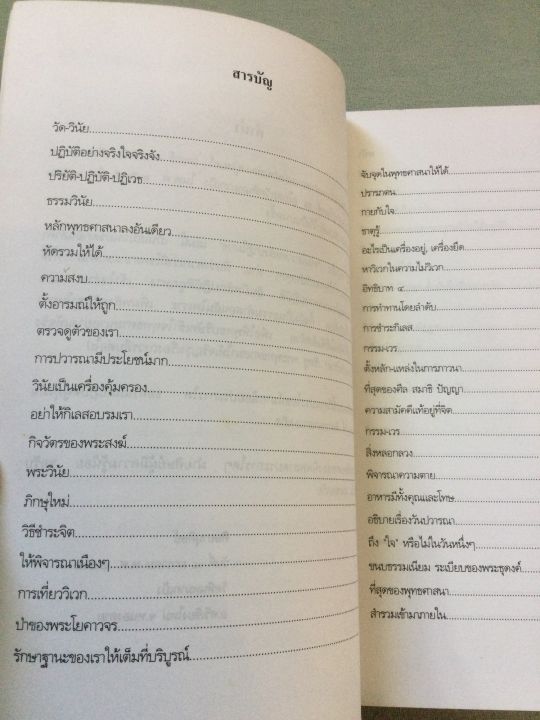 สารบัญ
วัด-วินัย
ปฏิบัติอย่างจริงใจจริงจัง
ปริยัติ-ปฏิบัติ-ปฏิเวธ
ธรรมวินัย
หลักพุทธศาสนาลงอันเดียว
หัดรวมให้ได้
ความสงบ
ตั้งอารมณ์ให้ถูก
ตรวจดูตัวของเรา
การปวารณามีประโยชน์มาก
วินัยเป็นเครื่องคุ้มครอง
อย่าให้กิเลสอบรมเรา
กิจวัตรของพระสงฆ์
พระวินัย
ภิกษุใหม่
วิธีชำระจิต
ให้พิจารณาเนืองๆ
การเที่ยววิเวก
ป่าของพระโยคาวจร
รักษาฐานะของเราให้เต็มที่บริบูรณ์
จับจุดในพุทธศาสนาให้ได้
ปรารภตน
กายกับใจ
ธาตุรู้
อะไรเป็นเครื่องอยู่, เครื่องยึด
หาวิเวกในความไม่วิเวก
อิทธิบาท ๔
การทำทานโดยลำดับ
การชำระกิเลส
กรรม-เวร
ตั้งหลัก-แหล่งในการภาวนา
ที่สุดของศีล สมาธิ ปัญญา
ความสามัคคีแท้อยู่ที่จิต
กรรม-เวร
สิ่งหลอกลวง
พิจารณาความตาย
อาหารมีทั้งคุณและโทษ
อธิบายเรื่องวันปวารณา
ถึง "ใจ" หรือไม่ในวันหนึ่งๆ
ขนบธรรมเนียม ระเบียบของพระธุดงค์
ที่สุดของพุทธศาสนา
สำรวมเข้ามาภายใน